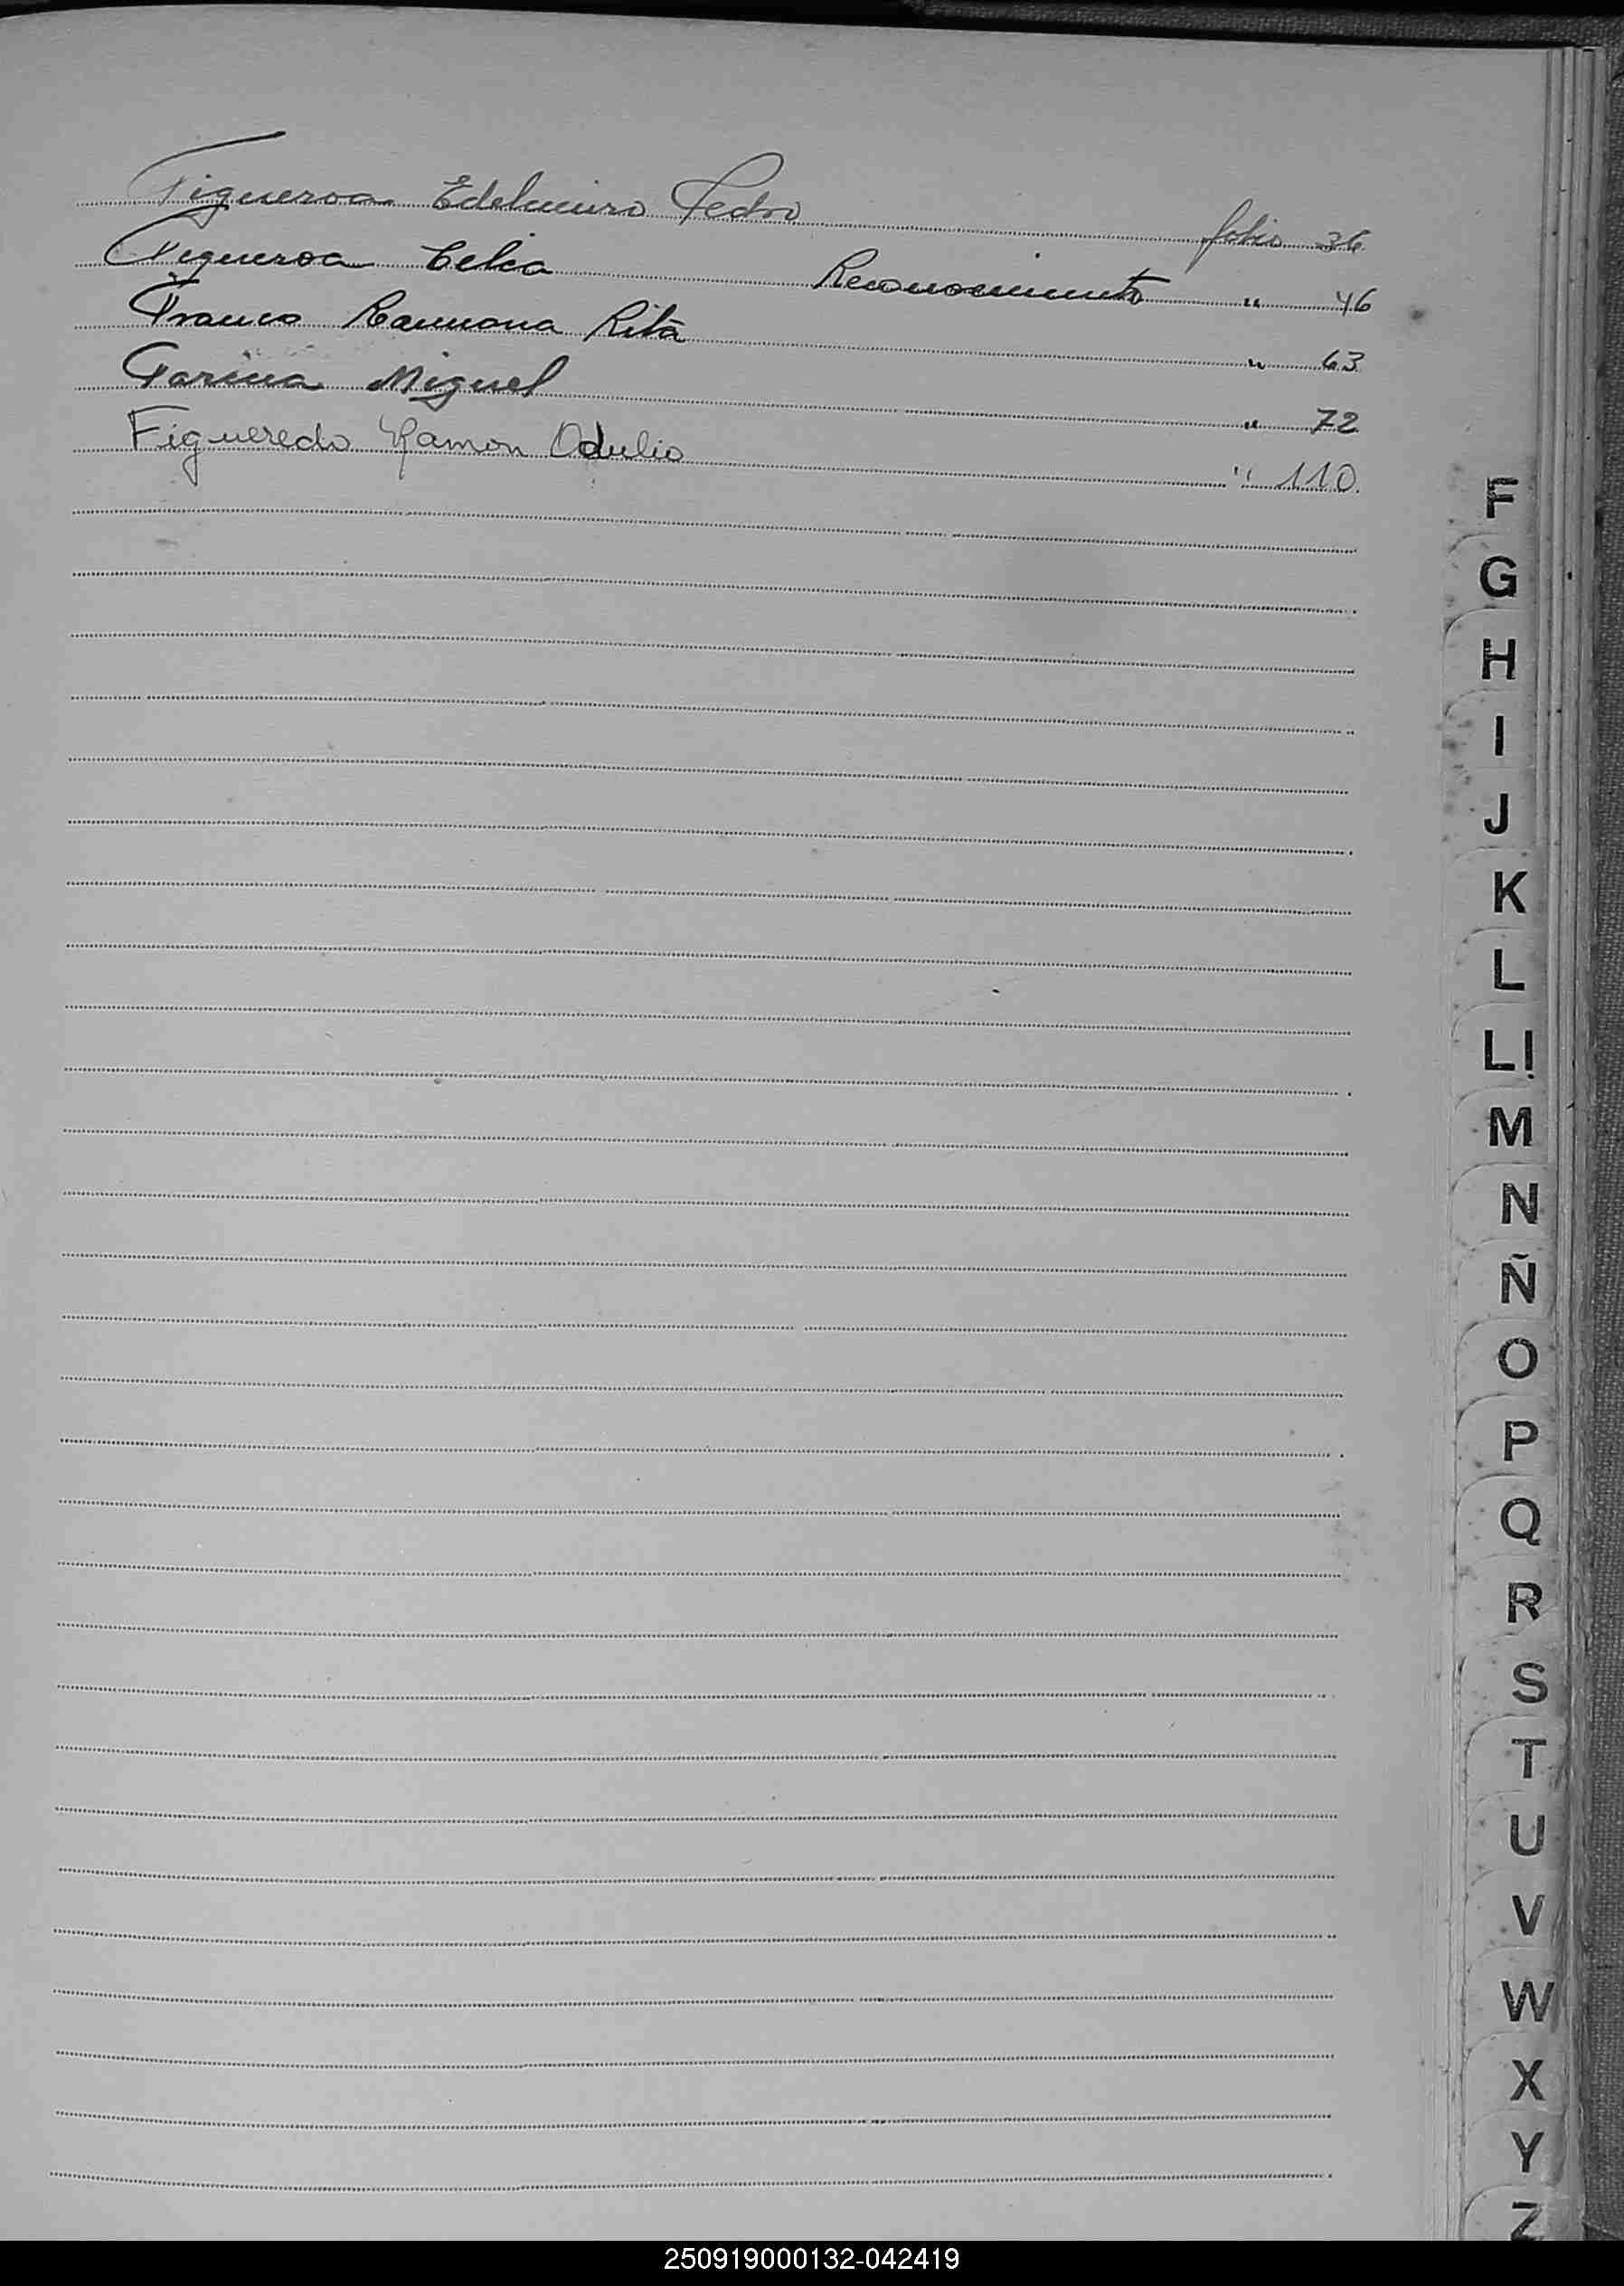 Figueroa Edelmiro Pedro folio 36
Figueroa Celia Reconocimiento " 46
Franco Ramona Rita " 63
Farina Miguel " 72
Figueredo Ramon Odulio " 110
F
G
H
I
J
K
L
LL
M
N
Ñ
O
P
Q
R
S
T
U
V
W
X
Y
Z
250919000132-042419